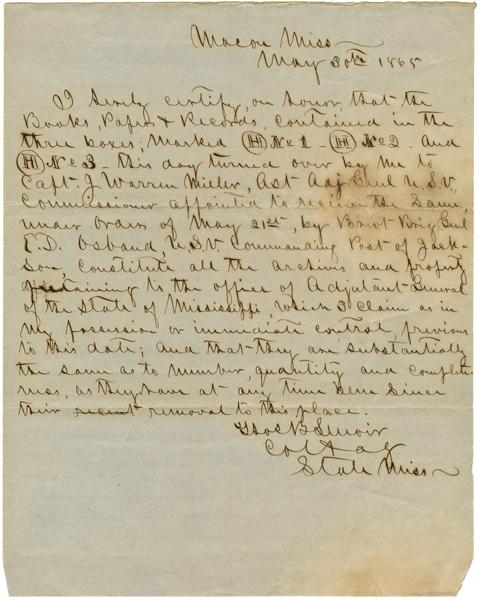 Macon Miss
May 30th 1865
I hereby certify, on honor, that the
Books, Papers & Records, contained in the
three boxes; marked (H) No 1 - (H) No 2 and
(H) No 3 - this day turned over by me to
Capt. J Warren Miller, Ast Adj Genl U.S.V.,
Commissioner appointed to receive the same,
under orders of May 21st, by Brevt Brig Genl
E.D. Osband, U.S.V Commanding Post of Jack-
son, constitute all the archives and property
pertaining to the office of Adjutant General
of the State of Mississippi, which I claim as in
my possession or immediate control, previous
to this date; and that they are substantially
the same as to number, quantity and complete
ness, as they have at any time been since
their recent removal to this place.
Col & ag
State Miss